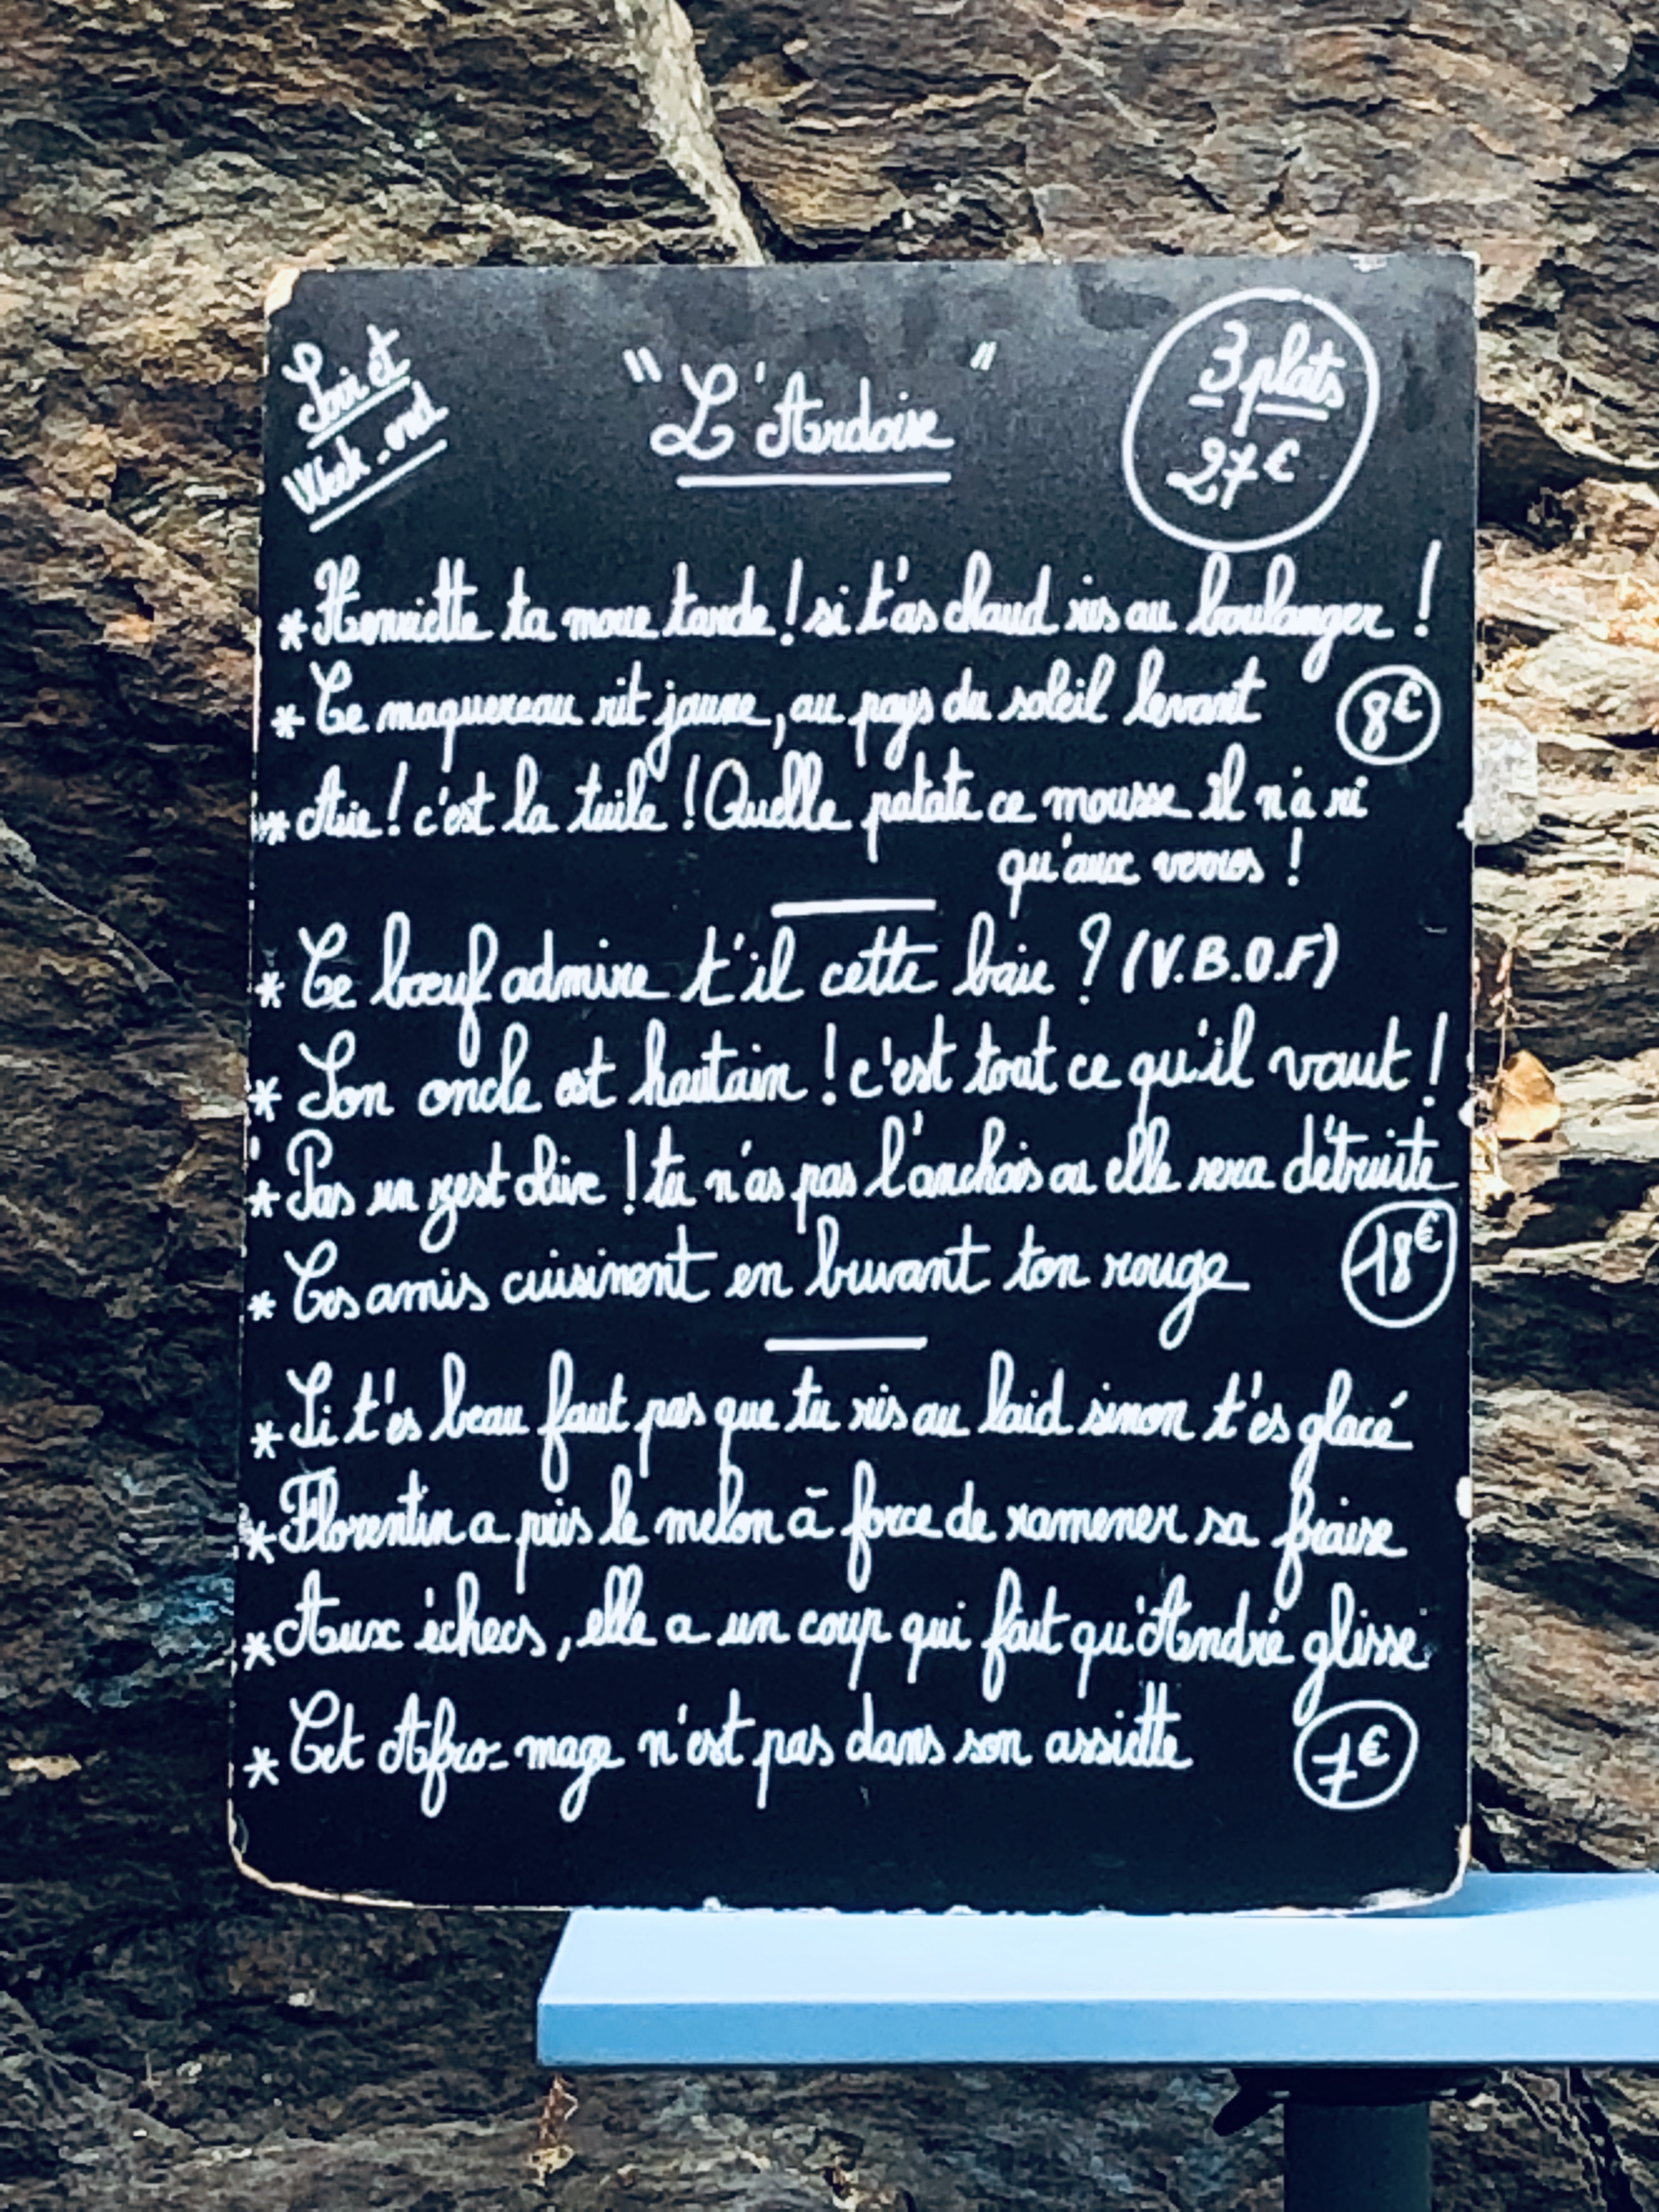 Soir et
Week-end
"L'Ardoise"
3 plats
27€
* Henriette ta moue tarde ! si t'as chaud ris au boulanger !
* Ce maquereau rit jaune, au pays du soleil levant 8€
* Aïe ! c'est la tuile ! Quelle patate ce mousse il n'a ri
qu'aux verres !
* Ce bœuf admire t'il cette baie ? (V.B.O.F)
* Son oncle est hautain ! c'est tout ce qu'il vaut !
* Pas un zest olive ! tu n'as pas l'anchois ou elle sera détruite
* Ces amis cuisinent en buvant ton rouge 18€
* Si t'es beau faut pas que tu ris au laid sinon t'es glacé
* Florentin a pris le melon à force de ramener sa fraise
* Aux échecs, elle a un coup qui fait qu'André glisse
* Cet Afro-mage n'est pas dans son assiette 7€